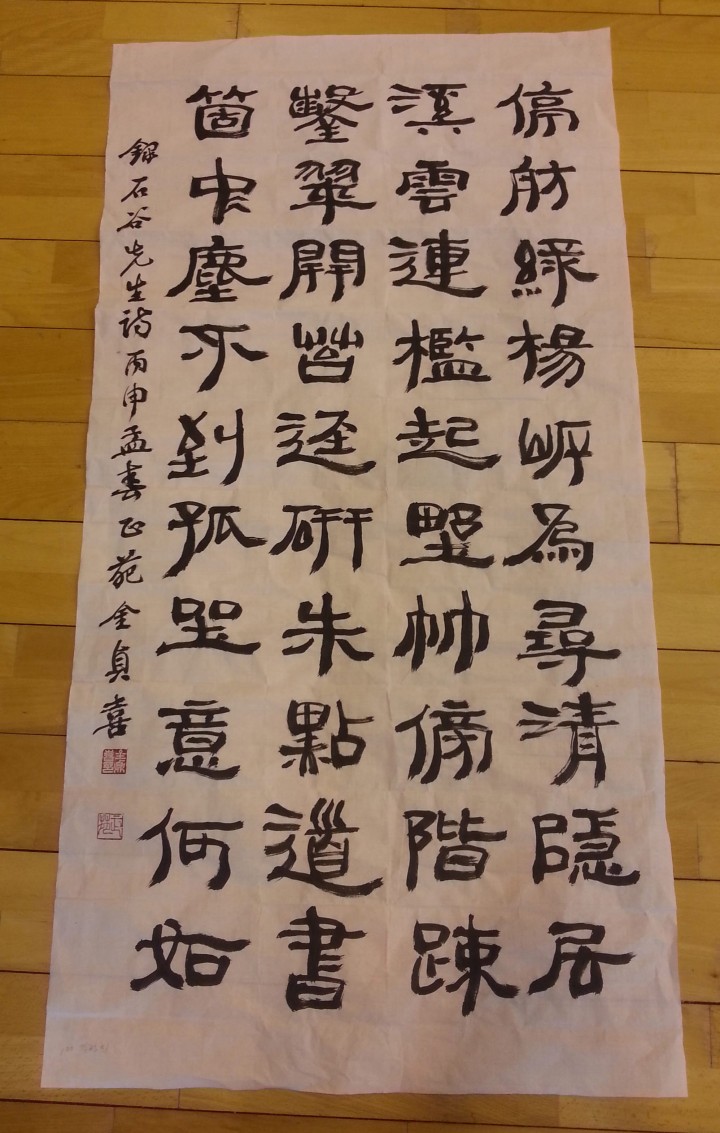 停舫綠楊岸為尋清隱居
溪雲連檻起野竹傍階踈
鑿翠開苔逕研朱點道書
箇中塵不到孤坐意何如
錄石谷先生詩丙申孟春正苑金貞喜